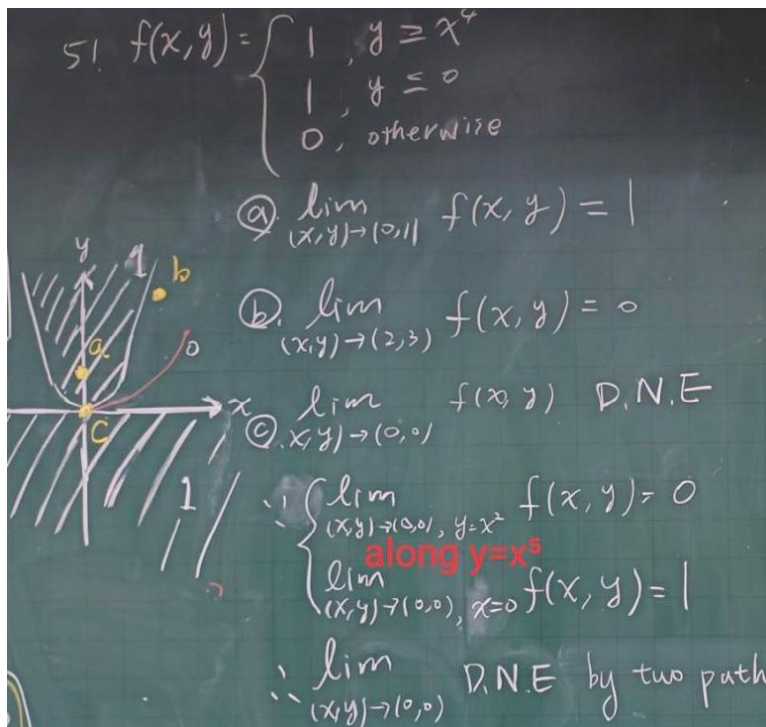 51. f(x,y) = { 1 , y ≥ x⁴
1 , y ≤ 0
0 , otherwise
ⓐ. lim (x,y)→(0,1) f(x,y) = 1
ⓑ. lim (x,y)→(2,3) f(x,y) = 0
ⓒ. lim x,y)→(0,0) f(x,y) D.N.E
∵ { lim (x,y)→(0,0), y=x² f(x,y) = 0
along y=x⁵
lim (x,y)→(0,0), x=0 f(x,y) = 1
∴ lim (x,y)→(0,0) D.N.E by two path
y
1
b
a
0
x
c
1